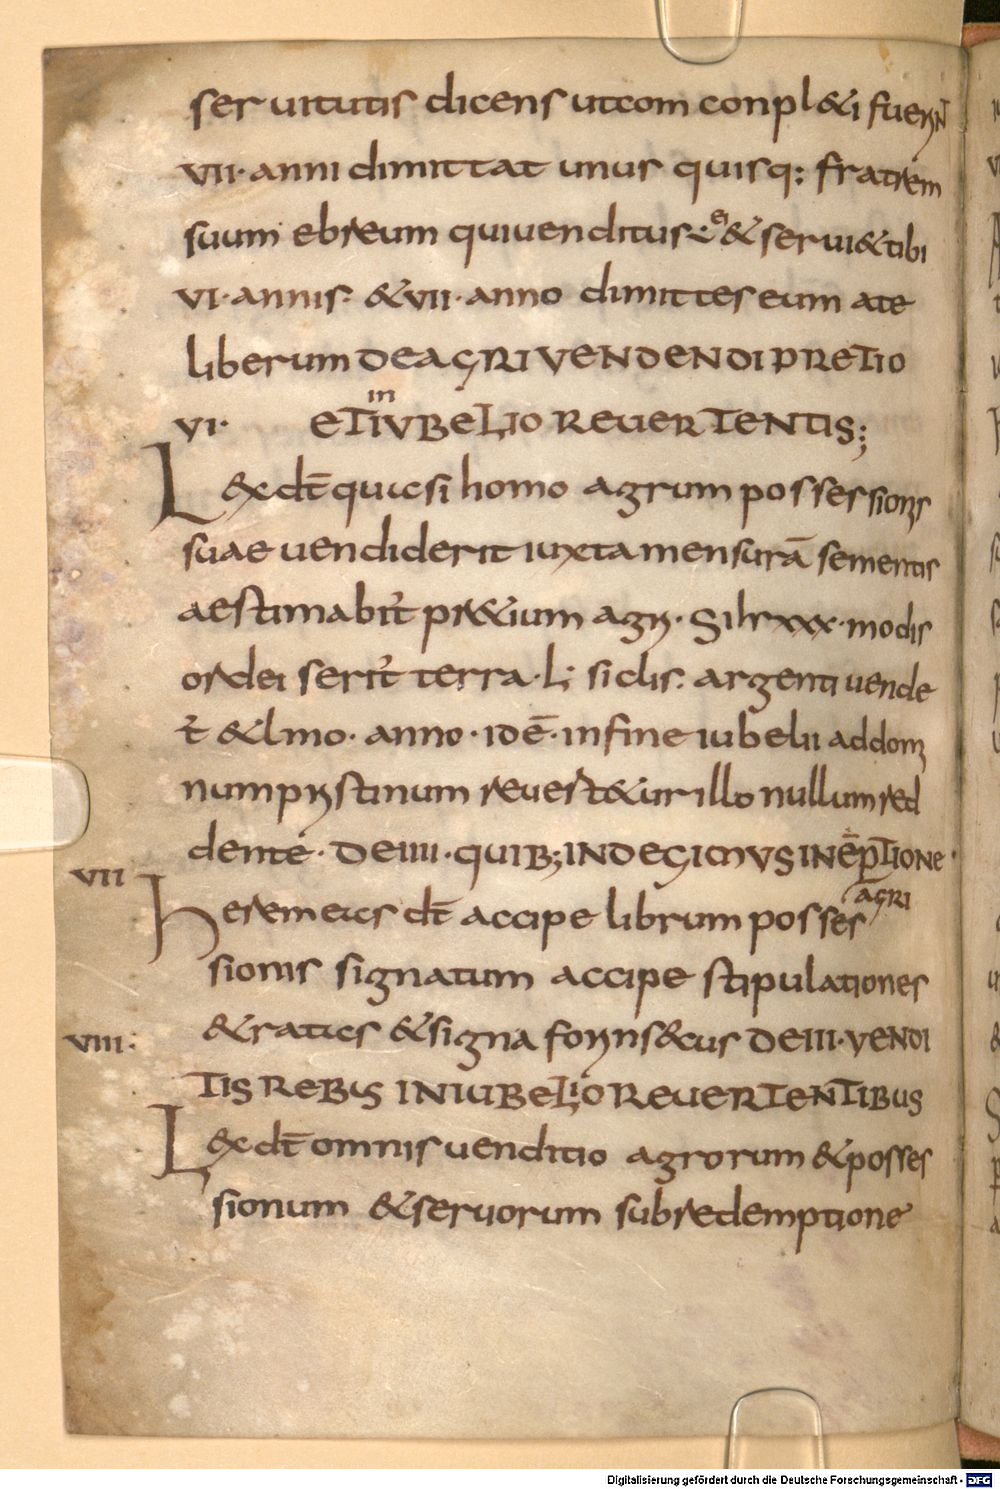 seruitutis dicens ut com conpl&i fuerint
VII· anni dimittat unus quisq: fratrem
suum ebreum qui uenditus ei & serui& tibi
VI· annis· & VII· anno dimittes eum a te
liberum DE AGRI VENDENDI PRETIO
VI· ET in IVBELIO REUERTENTIS;
Lex dt quic si homo agrum possessionis
suae uendiderit iuxta mensurā sementis
aestimabit pr&ium agri· Si hr xxx· modis
ordei serit terra· L; siclis· argenti uende
t̄ & lmo· anno· idē· in fine iubelii ad domi
num pristinum reuert&ur illo nullum red
dente· DE IIII· QUIB; INDEGIMUS IN ĒPTIONE·
VII heremeics dt accipe librum posses AGRI
sionis signatum accipe stipulationes
VIII: & ratics & signa forins&us DE III· VENDI
TIS REBUS IN IUBELIO REUERTENTIBUS
Lex dt omnis uenditio agrorum & posses
sionum & seruorum sub redemptione
Digitalisierung gefördert durch die Deutsche Forschungsgemeinschaft - DFG